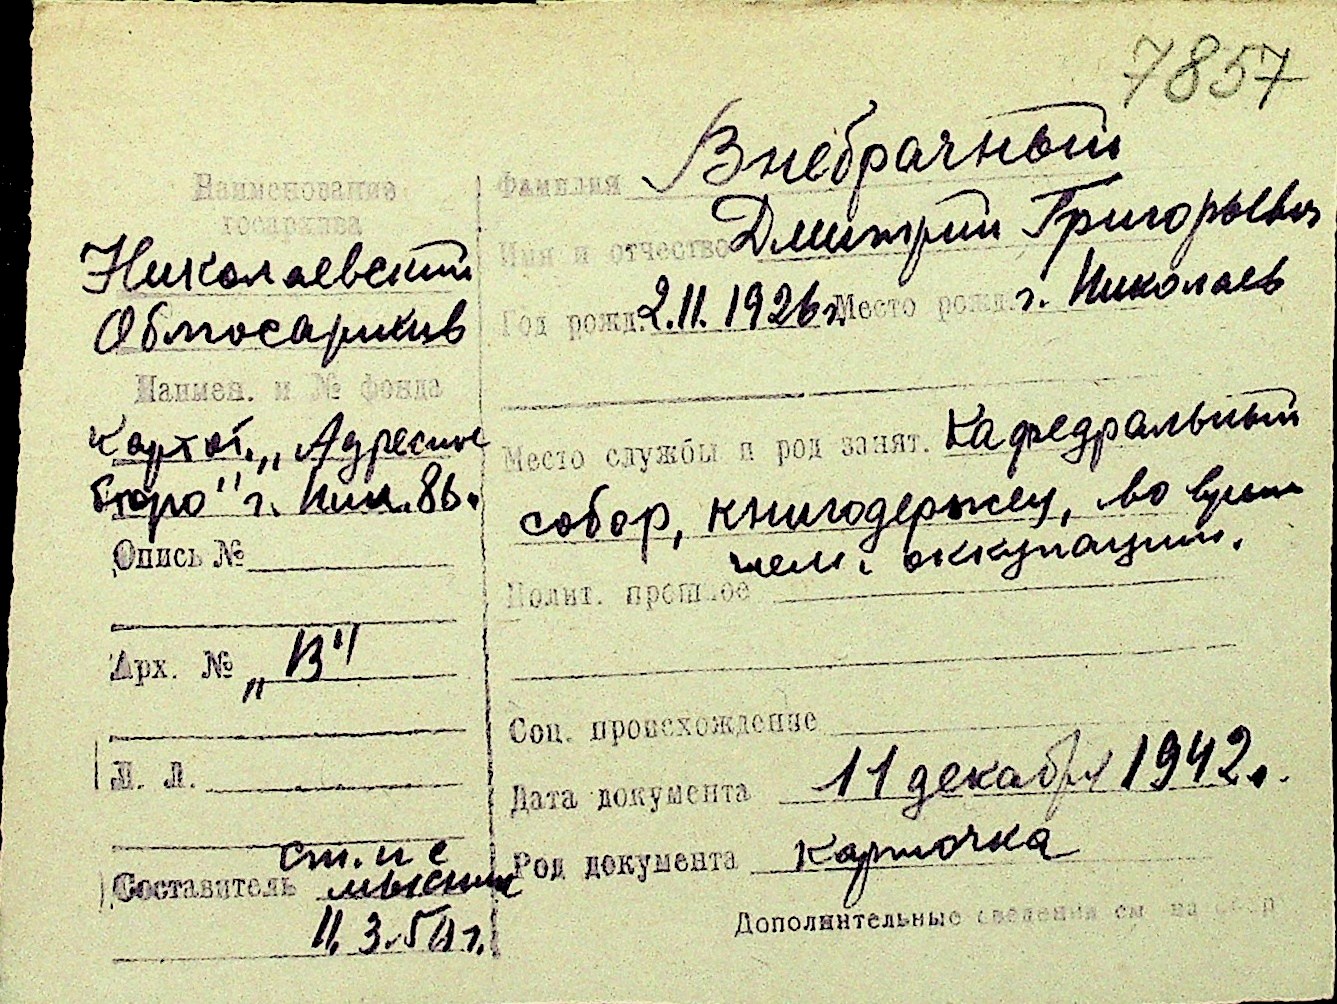 7857
Наименование
госархива
Николаевский
Облгосархив
Наимен. и № фонда
Картот. „Адресное
бюро" г. Ник. 86.
Опись №
Арх. № „В"
Л. Л.
Составитель ст. н с
11.3.50 г.
Фамилия Внебрачный
Имя и отчество Дмитрий Григорьевич
Год рожд. 2.II.1926 г. Место рожд. г. Николаев
Место службы и род занят. Кафедральный
собор, книгодержец, во время
нем. оккупации.
Полит. прошлое
Соц. происхождение
Дата документа 11 декабря 1942.
Род документа карточка
Дополнительные сведения см на обор